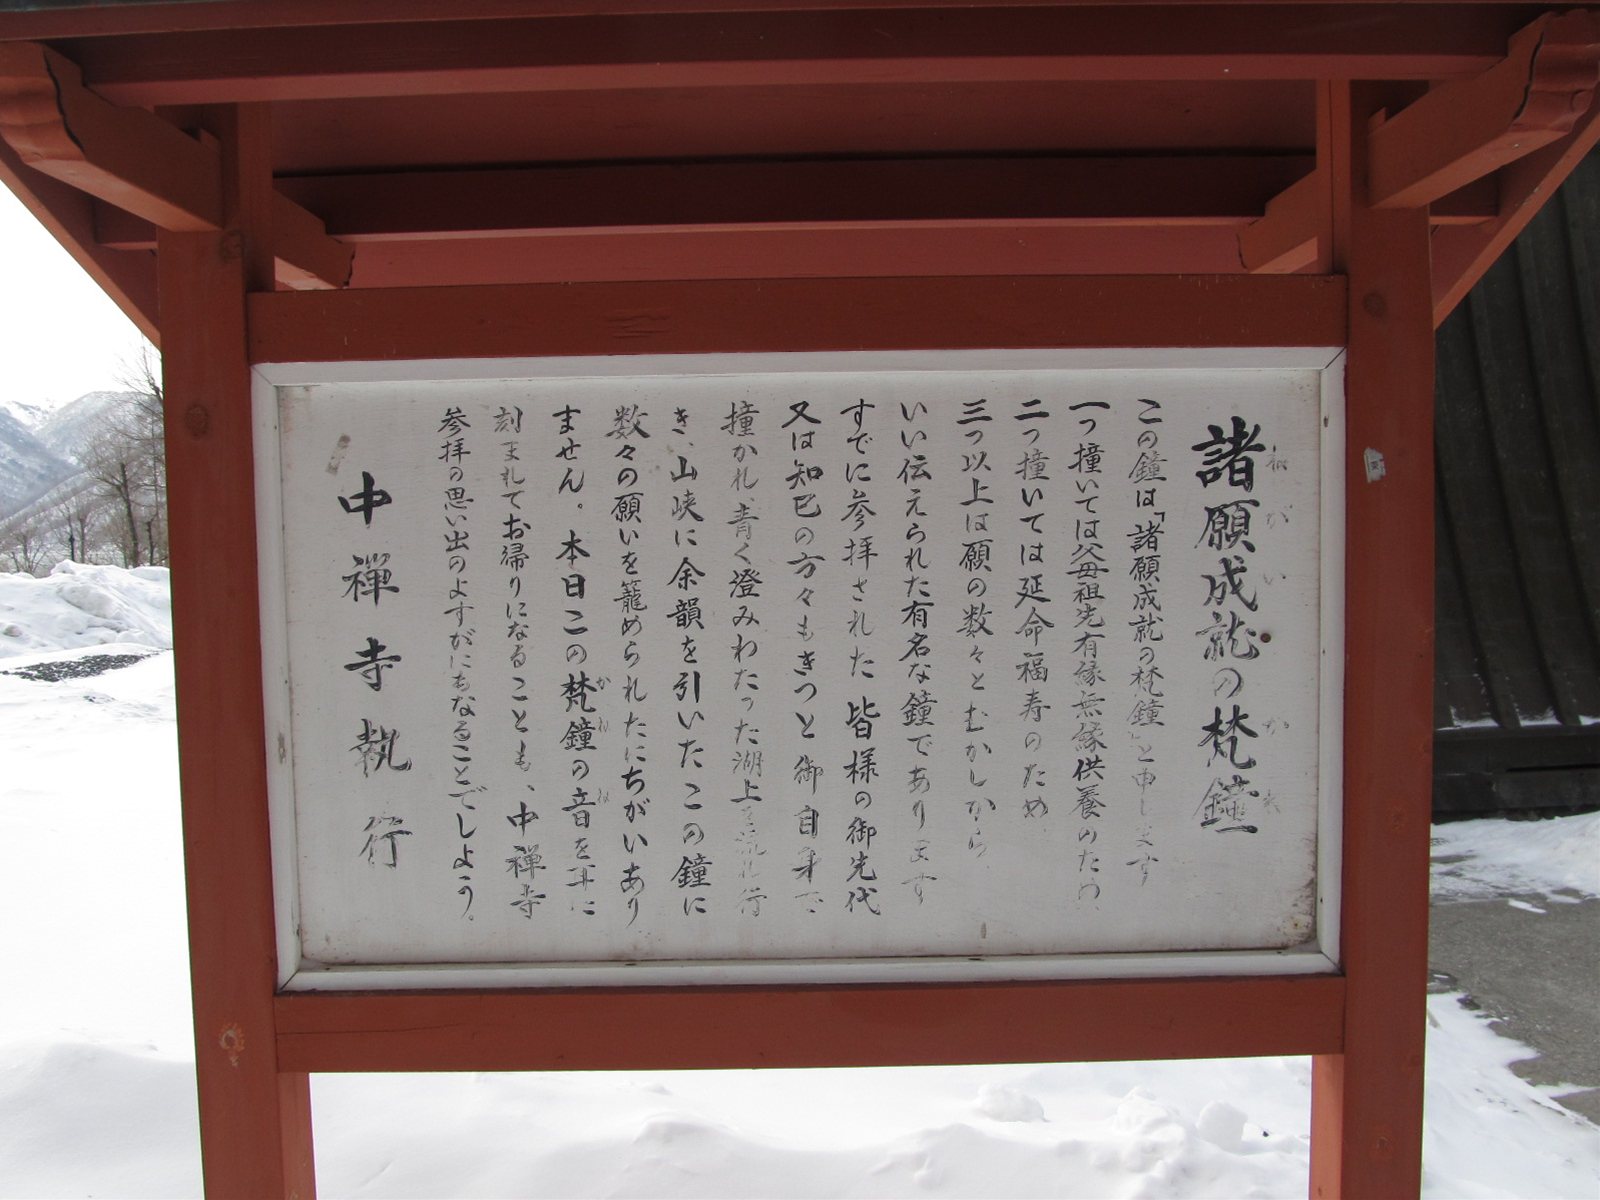 諸願成就の梵鐘
この鐘は「諸願成就の梵鐘」と申します
一つ撞いては父母祖先有縁無縁供養のため
二つ撞いては延命福寿のため
三つ以上は願の数々とむかしから
いい伝えられた有名な鐘であります
すでに参拝された皆様の御先代
又は知巳の方々もきつと御自身で
撞かれ、青く澄みわたった湖上を流れ行
き、山峡に余韻を引いたこの鐘に
数々の願いを籠められたにちがいあり
ません。本日この梵鐘の音を耳に
刻まれてお帰りになることも、中禅寺
参拝の思い出のよすがにもなることでしよう。
中禅寺執行